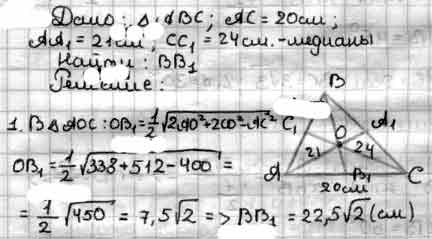 Дано: △ ABC; AC = 20см;
AA₁ = 21см, CC₁ = 24см. - медианы
Найти: BB₁
Решение:
1. В △ AOC: OB₁ = 1/2 √(2AO² + 2CO² - AC²)
OB₁ = 1/2 √(338 + 512 - 400) =
= 1/2 √450 = 7,5√2 => BB₁ = 22,5√2 (см)
B
C₁
A₁
O
21
24
A
B₁
C
20см